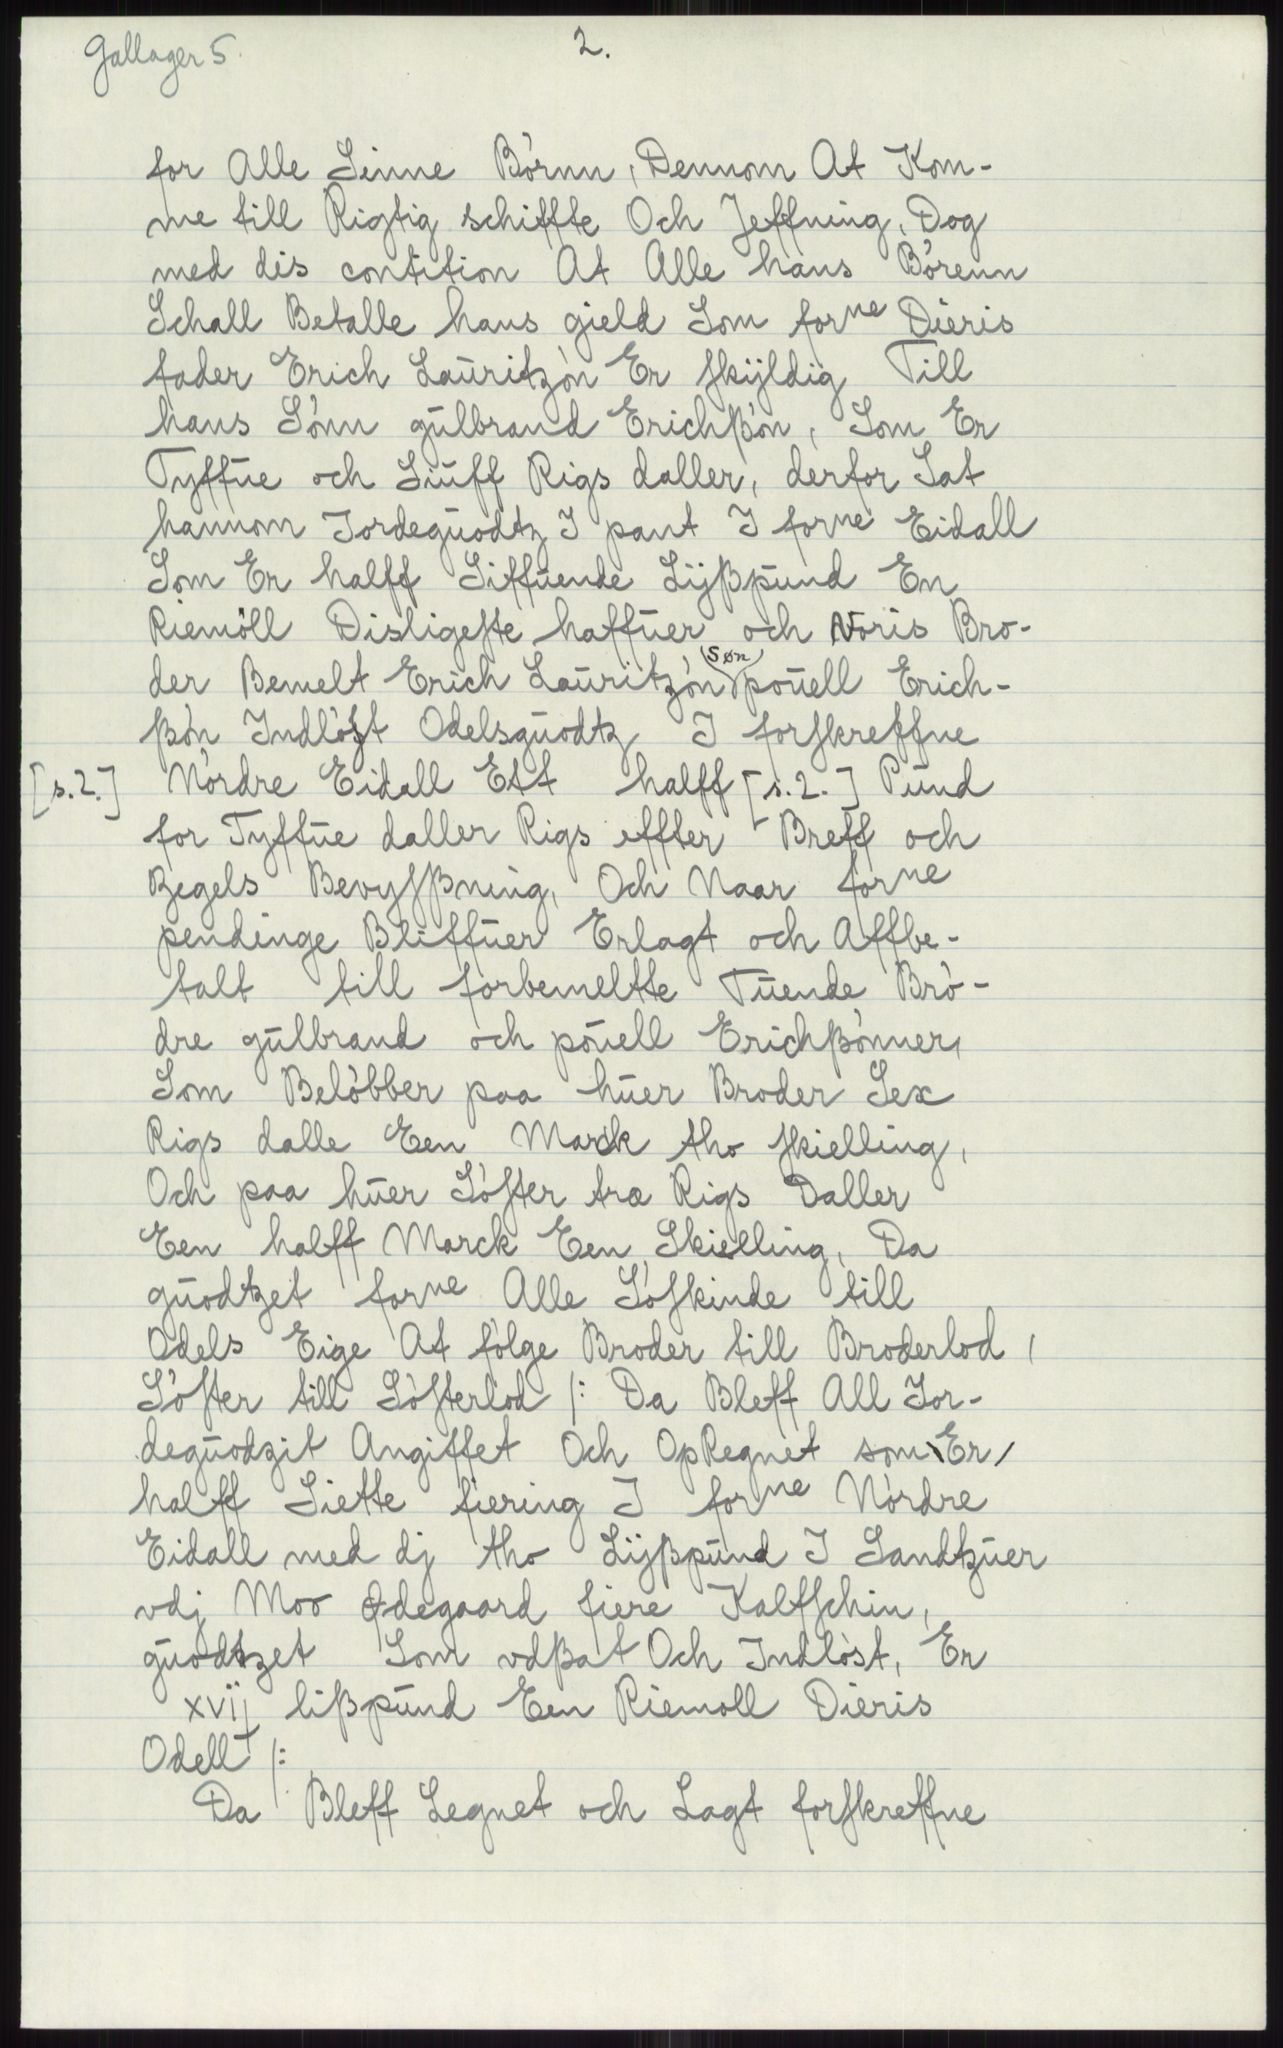 Gallager 5.
2.
for Alle Sinne Börnn, Dennom At Kom-
me till Rigtig schiffte Och Jeffning, Dog
med dis contition At Alle hans Börenn
Schall Betalle hans gield Som forne Dieris
fader Erich Lauritzón Er skÿldig Till
hans Sónn gulbrand Erichßón, Som Er
Tyffue och Siuff Rigs daller, derfor Sat
hannom Jordeguodtz I pant I forne Eidall
Som Er halff Siffuende Lÿßpund En
Riemöll Disligeste haffuer och Voris Bro-
der Bemelt Erich Lauritzón (søn) pouell Erich-
ßón Indlöst Odelsguodtz I forskreffne
[s.2.] Nórdre Eidall Ett halff [s.2.] Pund
for Tyffue daller Rigs effter Breff och
Zegels Bevysßning, Och Naar forne
pendinge Bliffuer Erlagt och Affbe-
talt till forbemeltte Tuende Bró-
dre gulbrand och pouell Erichßónner,
Som Belóbber paa huer Broder Sex
Rigs dalle Een Marck tho skielling,
Och paa huer Sóster træ Rigs Daller
Een halff Marck Een Skielling, Da
guodtzet forne Alle Sóskinde till
Odels Eige At fólge Broder till Broderlod,
Sóster till Sósterlod /: Da Bleff All Jor-
deguodzit Angiffet Och OpRegnet som Er,
halff Siette fiering I forne Nórdre
Eidall med dj tho Lÿßpund I Sandtzuer
vdj Moo Ødegaard fiere Kalfschin,
guodtzet Som vdßat Och Indlóst, Er
xvij lißpund Een Riemoll Dieris
Odell /:
Da Bleff Legnet och Lagt forskreffne